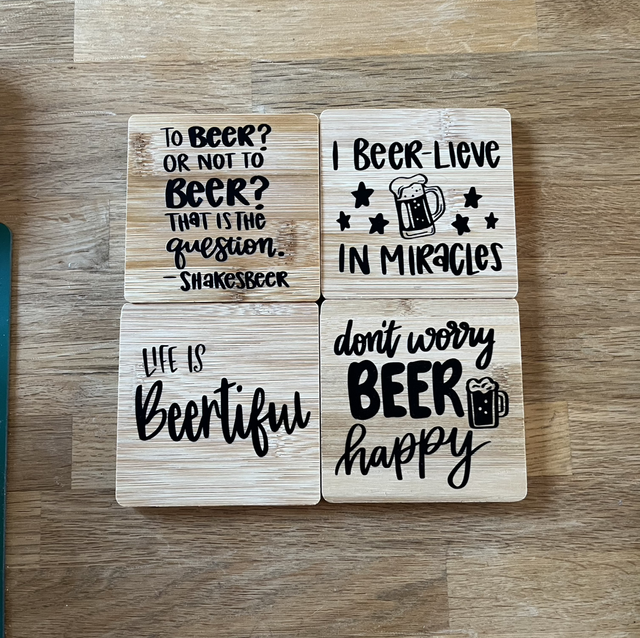 TO BEER?
OR NOT TO
BEER?
THAT IS THE
question.
-SHAKESBEER
I BEER-LIEVE
IN MIRACLES
LIFE IS
Beertiful
don't worry
BEER
happy